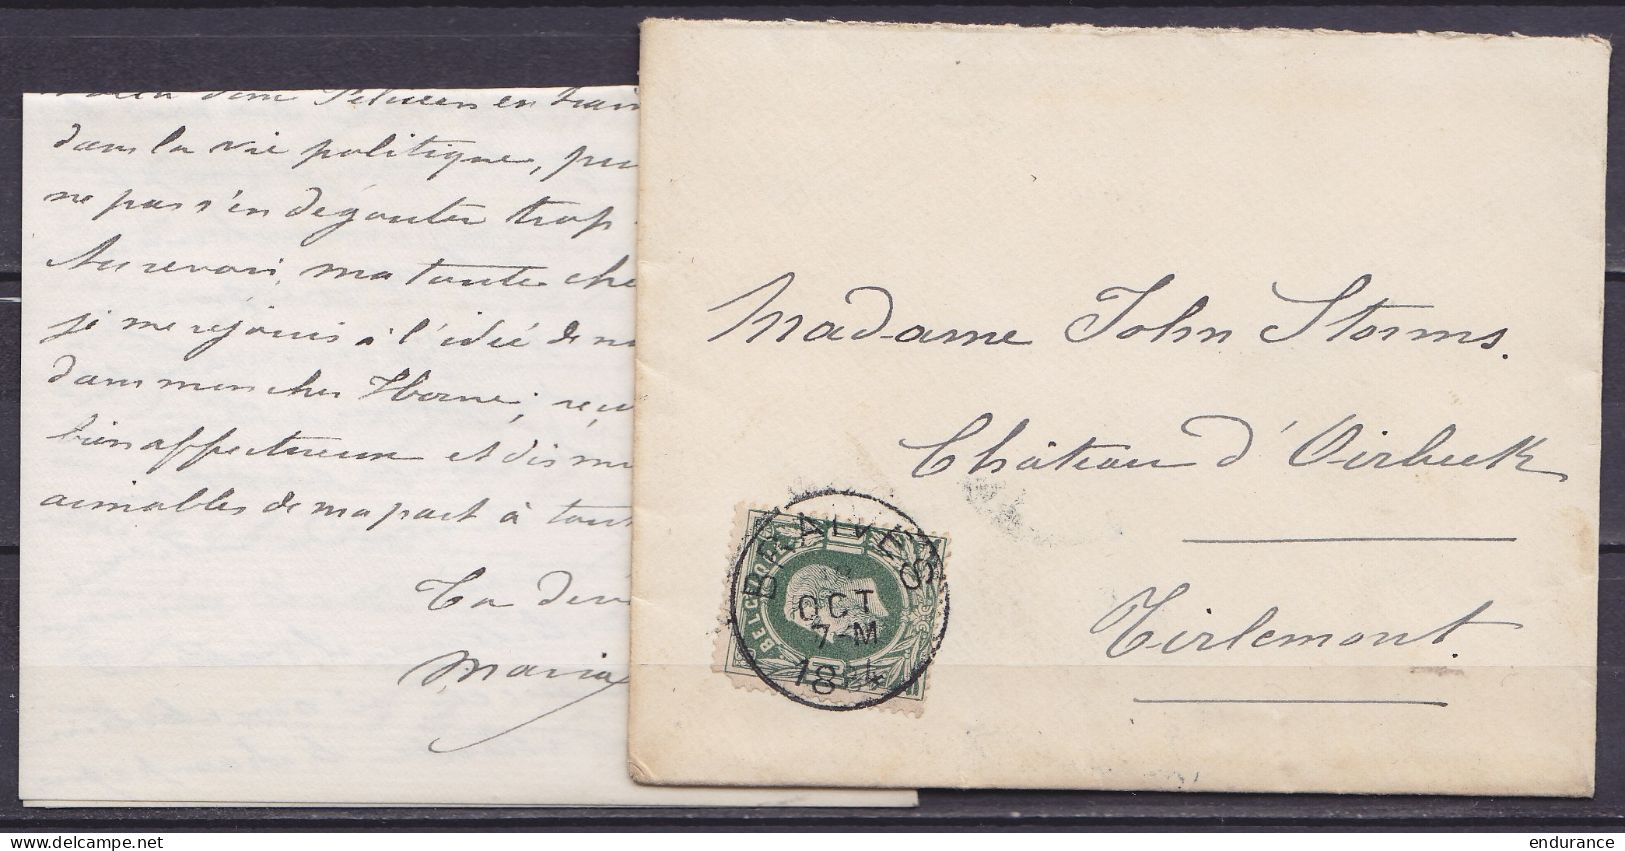 dans la vie politique,
ne pas s'en dégouter trop
Au revoir, ma toute che
je me rejouis à l'idée de
dans mon cher Horne;
bien affectueux et dis
aimables de ma part à tout
Ta
Maria
Madame John Storms.
Château d'Oirbeek
Tirlemont.
BRAIVES
OCT
7-M
1884
BELGIQUE
www.delcampe.net
endurance